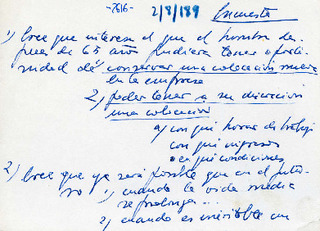 -2616- 2/8/189 Encuesta
1) Cree que interesa el que el hombre des-
pues de 65 años pudiera tener oport-
nidad de conservar una colocación nueva
en la empresa
2) poder tener a su discreción
una colocación
a) con qué horas de trabajo
con qué ingresos
en qué condiciones
2) Cree que ya será posible que en el futu-
ro 1) cuando la vida media
se prolonga...
2) cuando es